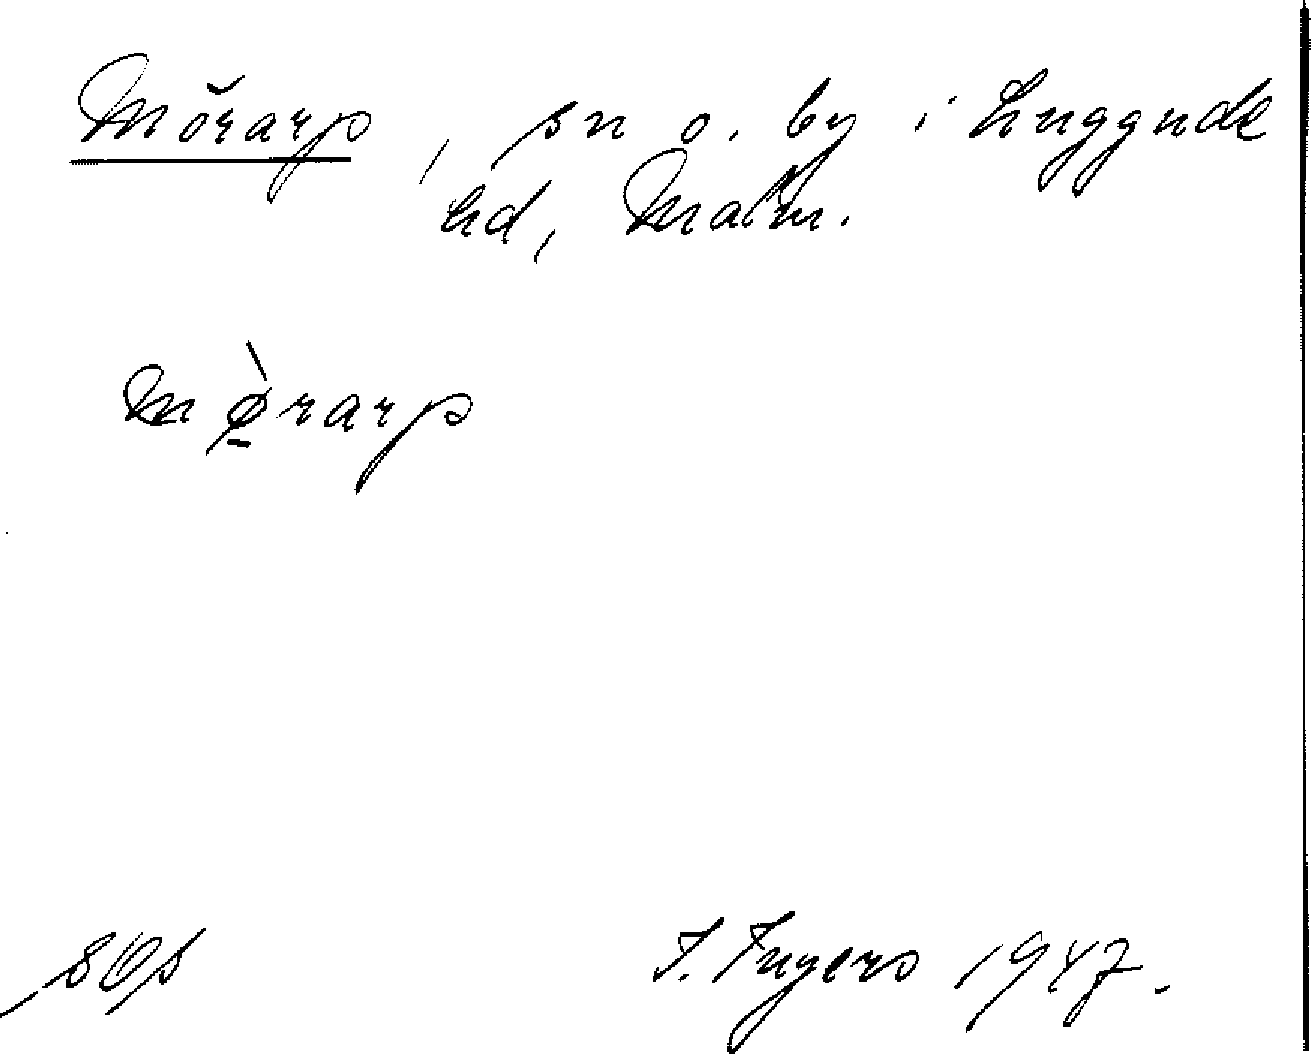 Mörarp, sn o. by i Luggude
hd, Malm.
Mø̀rarp
I. Ingers 1947.